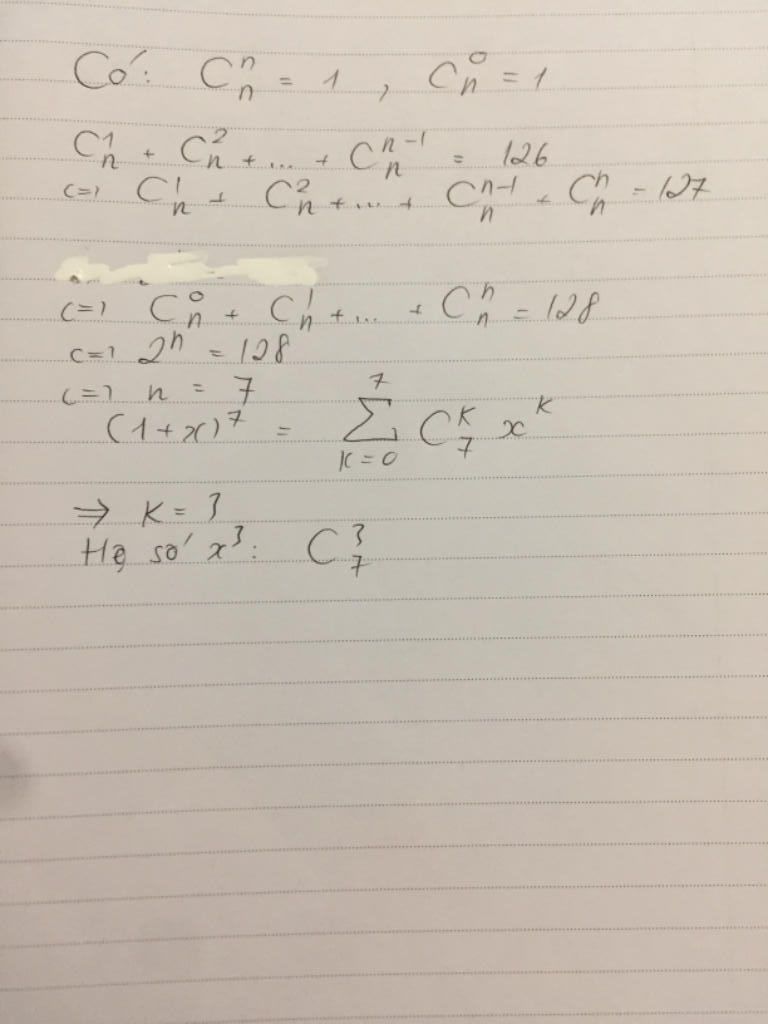 Có: C_n^n = 1 , C_n^0 = 1
C_n^1 + C_n^2 + ... + C_n^{n-1} = 126
<=> C_n^1 + C_n^2 + ... + C_n^{n-1} + C_n^n = 127
<=> C_n^0 + C_n^1 + ... + C_n^n = 128
<=> 2^n = 128
<=> n = 7
(1+x)^7 = \sum_{K=0}^{7} C_7^K x^K
=> K = 3
Hệ số x^3: C_7^3